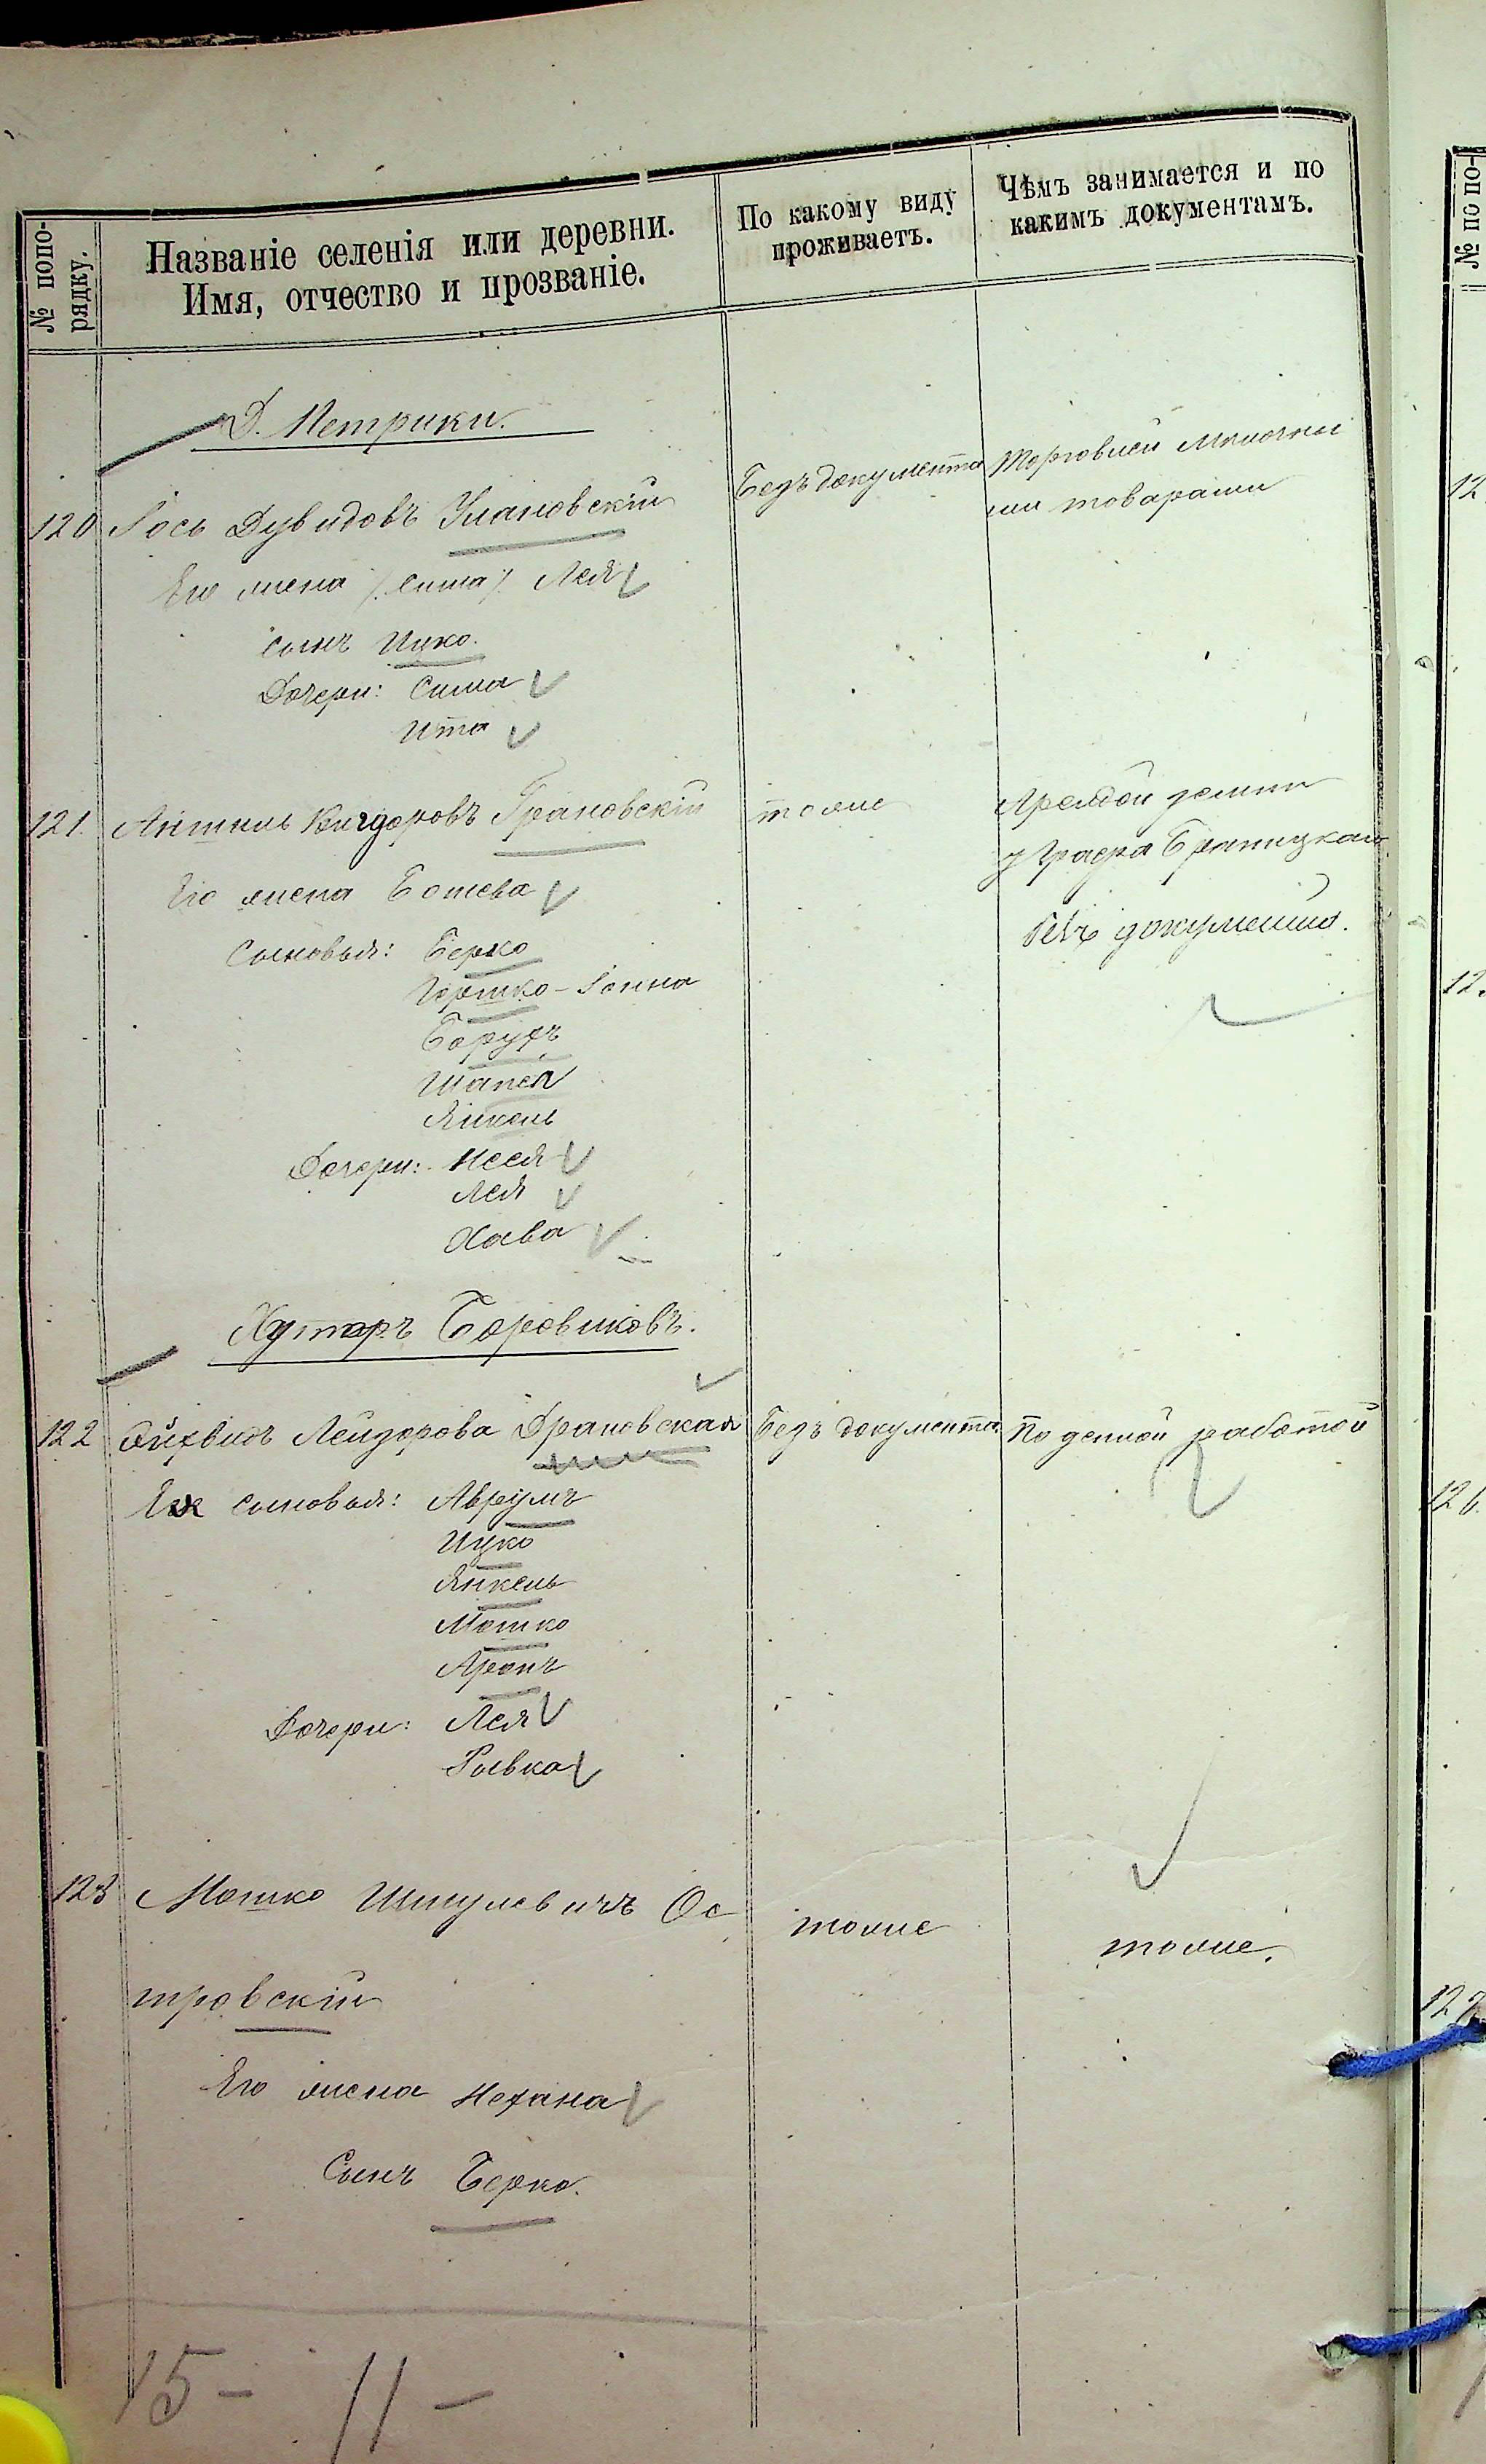 № попо-
рядку.
Названіе селенія или деревни.
Имя, отчество и прозваніе.
По какому виду
проживаетъ.
Чѣмъ занимается и по
какимъ документамъ.
Д. Петрики.
120 Іось Дувидовъ Улановскій
Безъ документа
Торговлей мелочны
ми товарами
Его жена /. Сима /. Лея
сынъ Ицко.
Дочери: Сима
Ита
121. Аншель Кигдоровъ Грановскій
тоже
Арендой земли
у Графа Браницкаго
безъ документа.
Его жена Бошева
Сыновья: Берко
Гершко-
Борухъ
Шапся
Янкель
Дочери: Неся
Лея
Хава
Хуторъ Боровиковъ.
122 Лейзорова Грановская
Безъ документа.
Поденной работой
Ея сыновья: Аврумъ
Ицко
Янкель
Мошко
Аронъ
Дочери: Лея
Рывка
123 Мошко Шмулевичъ Ос
тровскій
тоже
тоже.
Его жена Нехана
Сынъ Берко.
15 - 11 -
№ по по-
12
12.
126.
127